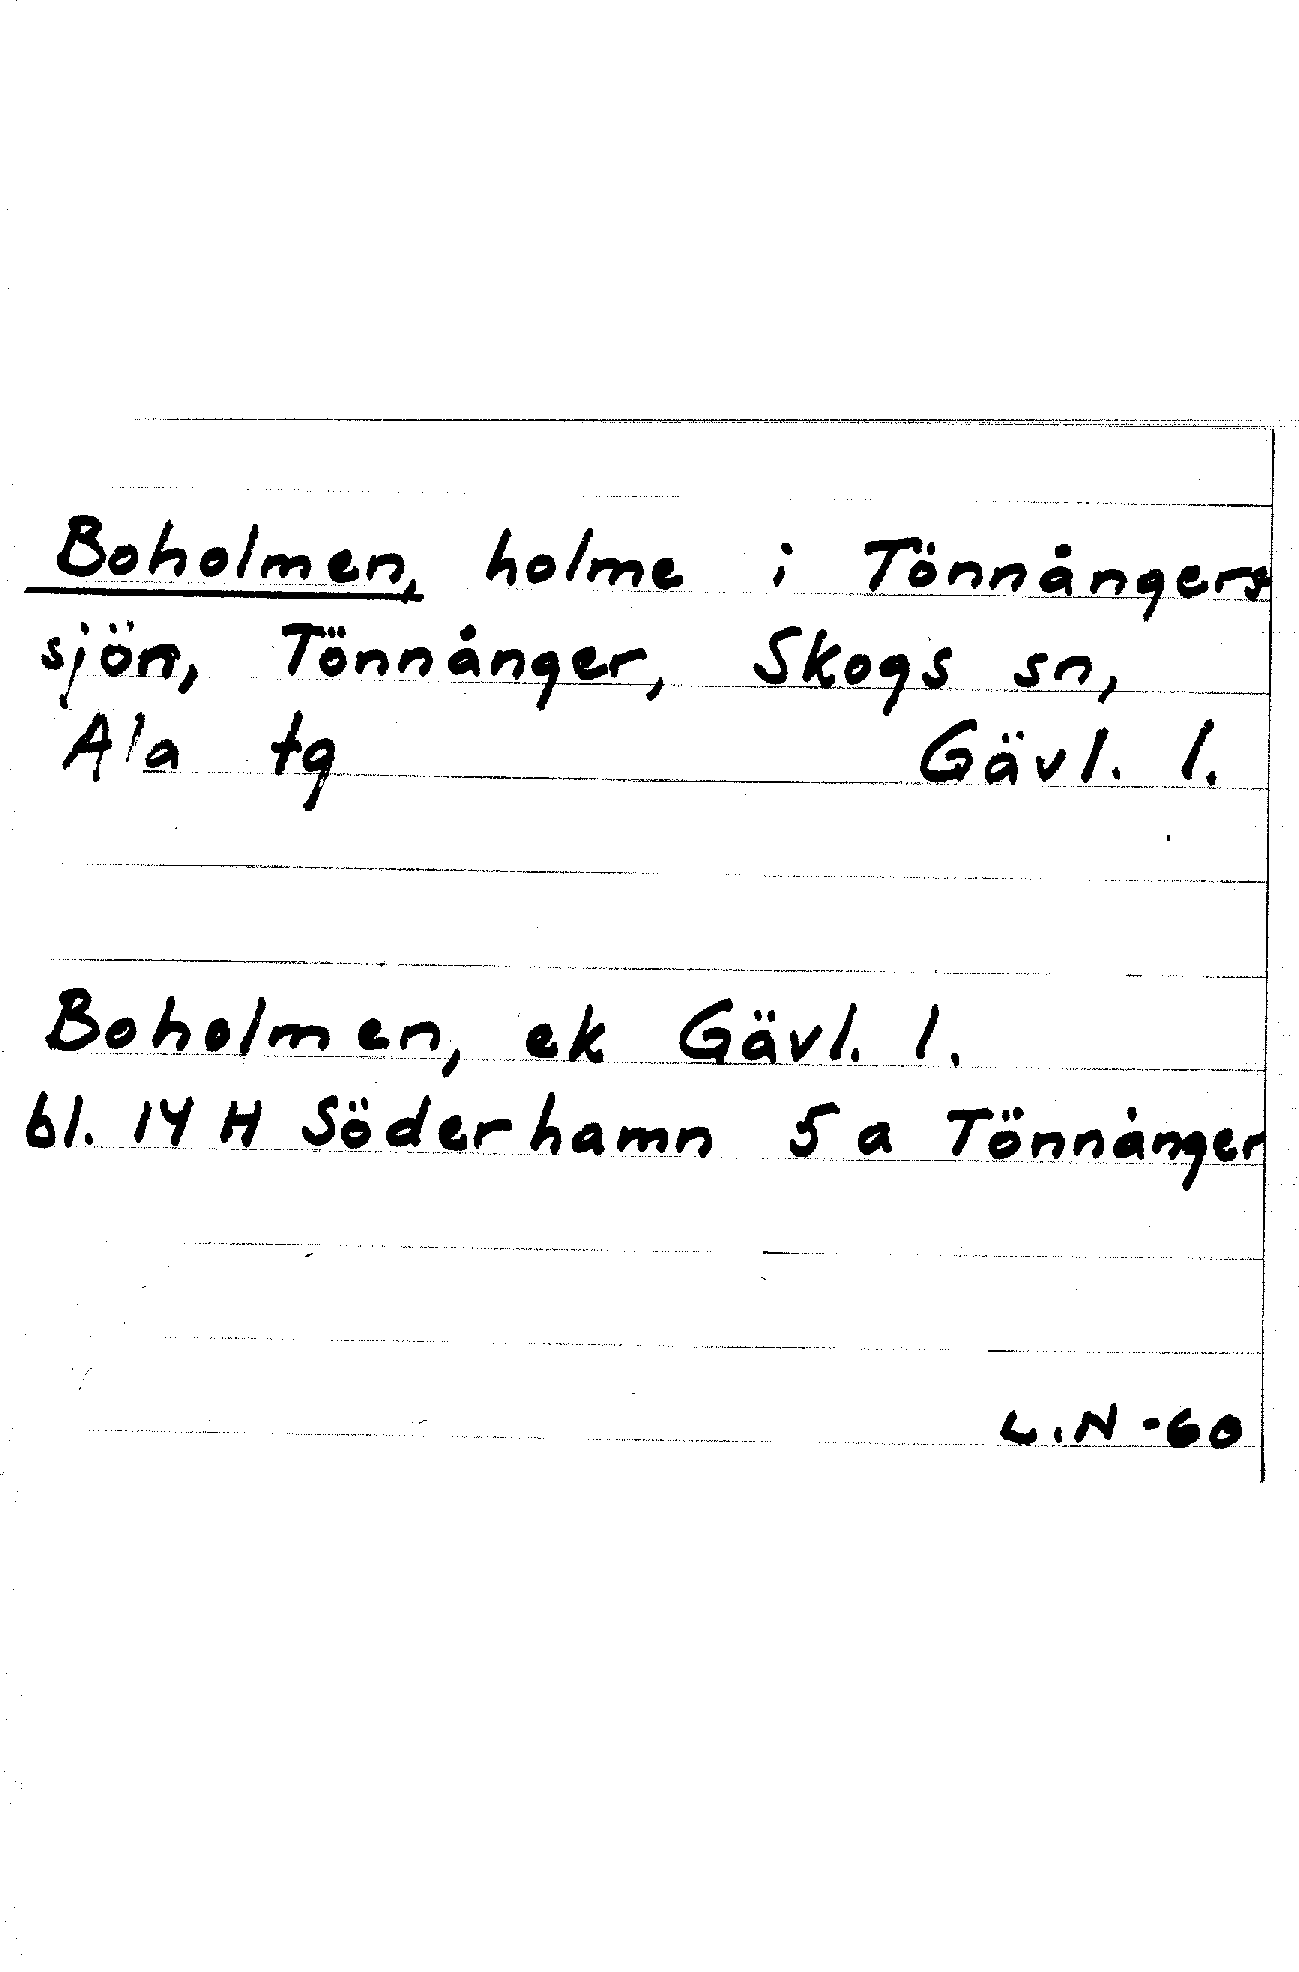 Boholmen, holme i Tönnångers
sjön, Tönnånger, Skogs sn,
Ala tg Gävl. l.
Boholmen, ek Gävl. l.
bl. 14 H Söderhamn 5 a Tönnånger
L.N -60